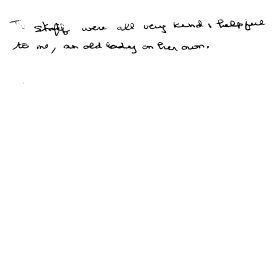 Staff were all very kind & helpful
to me, an old lady on her own.